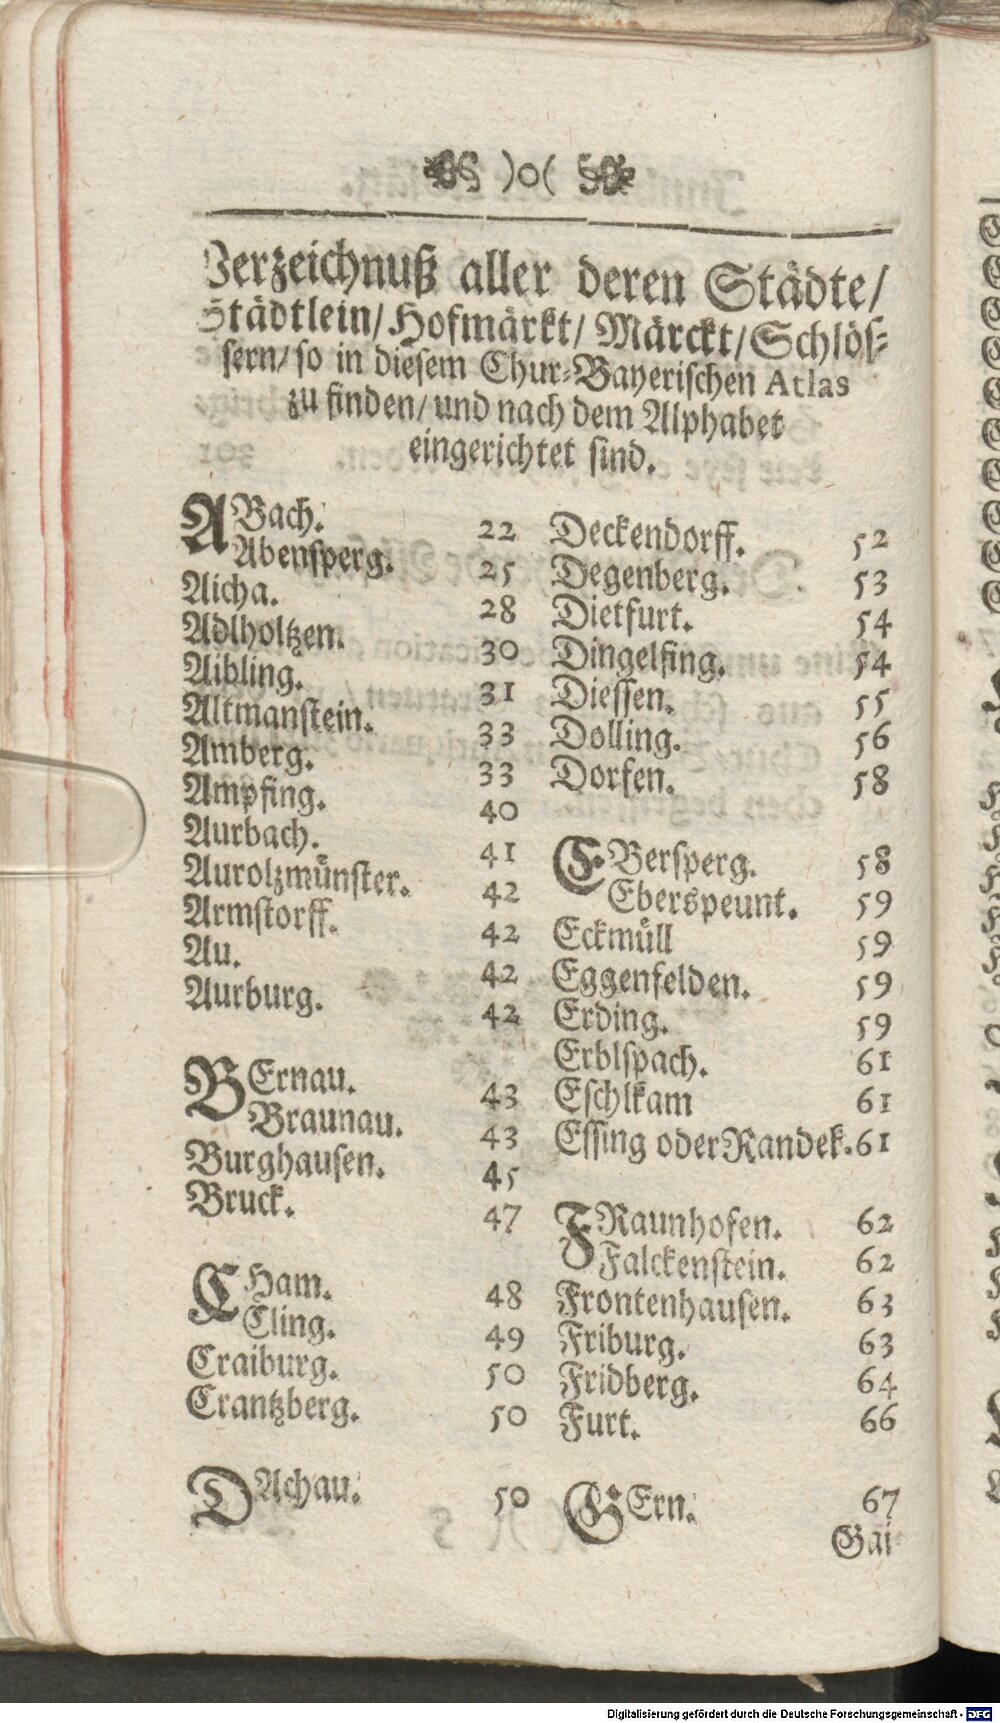 )o(
Verzeichnuß aller deren Städte/
Städtlein/ Hofmärkt/ Märckt/ Schlös-
sern/ so in diesem Chur-Bayerischen Atlas
zu finden/ und nach dem Alphabet
eingerichtet sind.
ABach. 22
Abensperg. 25
Aicha. 28
Adlholtzen. 30
Aibling. 31
Altmanstein. 33
Amberg. 33
Ampfing. 40
Aurbach. 41
Aurolzmünster. 42
Armstorff. 42
Au. 42
Aurburg. 42
BErnau. 43
Braunau. 43
Burghausen. 45
Bruck. 47
CHam. 48
Cling. 49
Craiburg. 50
Crantzberg. 50
DAchau. 50
Deckendorff. 52
Degenberg. 53
Dietfurt. 54
Dingelfing. 54
Diessen. 55
Dolling. 56
Dorfen. 58
EBersperg. 58
Eberspeunt. 59
Eckmüll 59
Eggenfelden. 59
Erding. 59
Erblspach. 61
Eschlkam 61
Essing oder Randek. 61
FRaunhofen. 62
Falckenstein. 62
Frontenhausen. 63
Friburg. 63
Fridberg. 64
Furt. 66
GErn. 67
Gai-
Digitalisierung gefördert durch die Deutsche Forschungsgemeinschaft - DFG